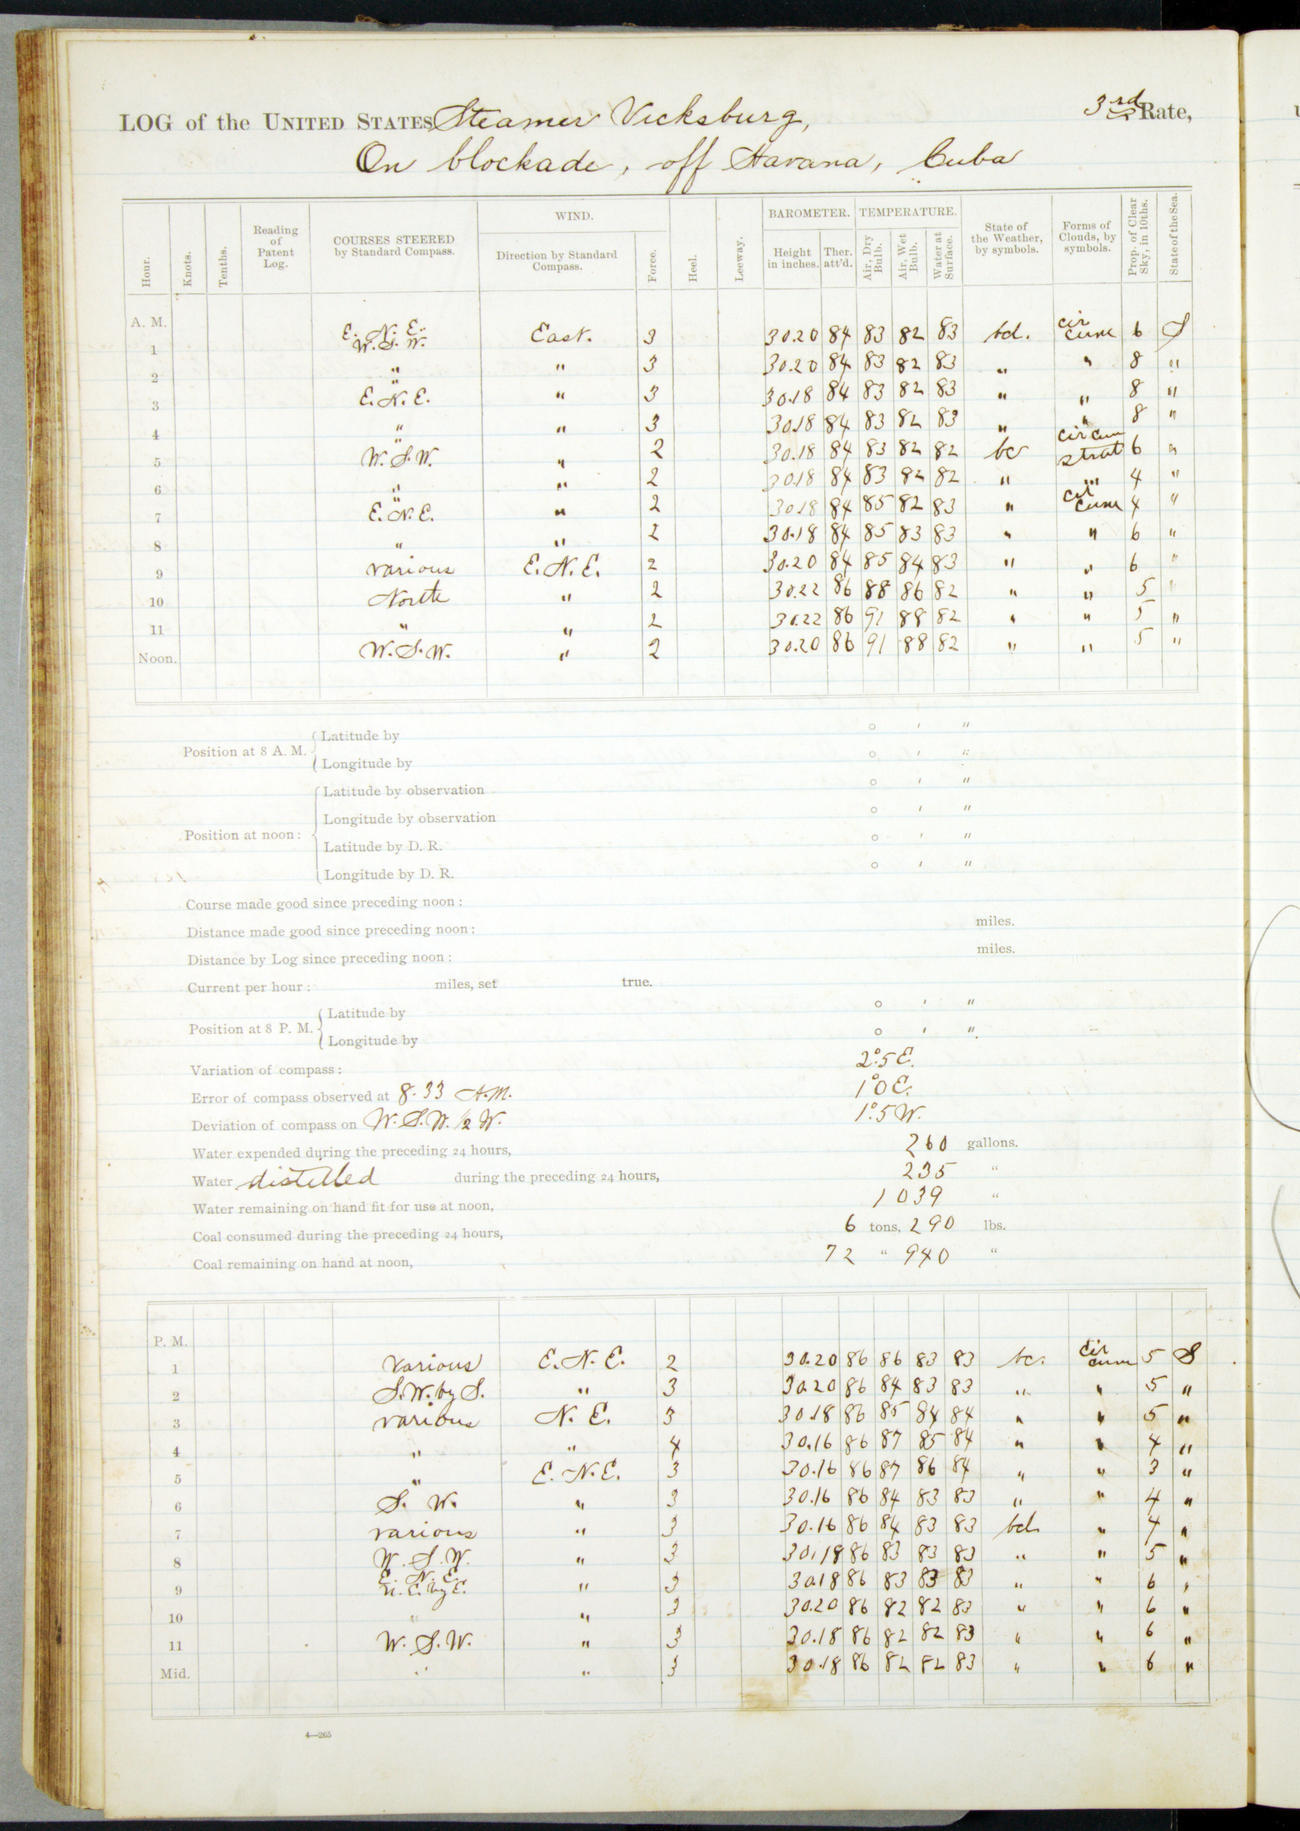 LOG of the UNITED STATES Steamer Vicksburg, 3rd Rate,
On blockade, off Havana, Cuba
Hour. Knots. Tenths. Reading of Patent Log. COURSES STEERED by Standard Compass. WIND. Direction by Standard Compass. Force. Heel. Leeway. BAROMETER. Height in inches. Ther. att'd. TEMPERATURE. Air, Dry Bulb. Air, Wet Bulb. Water at Surface. State of the Weather, by symbols. Forms of Clouds, by symbols. Prop. of Clear Sky, in 10ths. State of the Sea.
A. M.
1 E. N. E. W. S. W. East. 3 30.20 84 83 82 83 bd. cir cum 6 S
2 " " 3 30.20 84 83 82 83 " " 8 "
3 " E. N. E. " 3 30.18 84 83 82 83 " " 8 "
4 " " 3 30.18 84 83 82 83 " " 8 "
5 " W. S. W. " 2 30.18 84 83 82 82 bc cir cum strat 6 "
6 " " 2 30.18 84 83 82 82 " " 4 "
7 " E. N. E. " 2 30.18 84 85 82 83 " cir cum 4 "
8 " " 2 30.18 84 85 83 83 " " 6 "
9 various E. N. E. 2 30.20 84 85 84 83 " " 6 "
10 North " 2 30.22 86 88 86 82 " " 5 "
11 " " 2 30.22 86 91 88 82 " " 5 "
Noon. W. S. W. " 2 30.20 86 91 88 82 " " 5 "
Position at 8 A. M. Latitude by ° ' "
Longitude by ° ' "
Position at noon: Latitude by observation ° ' "
Longitude by observation ° ' "
Latitude by D. R. ° ' "
Longitude by D. R. ° ' "
Course made good since preceding noon:
Distance made good since preceding noon: miles.
Distance by Log since preceding noon: miles.
Current per hour: miles, set true.
Position at 8 P. M. Latitude by ° ' "
Longitude by ° ' "
Variation of compass: 2°.5 E.
Error of compass observed at 8.33 A.M. 1°0 E.
Deviation of compass on W. S. W. 1/2 W. 1°.5 W.
Water expended during the preceding 24 hours, 260 gallons.
Water distilled during the preceding 24 hours, 235 "
Water remaining on hand fit for use at noon, 1039 "
Coal consumed during the preceding 24 hours, 6 tons, 290 lbs.
Coal remaining on hand at noon, 72 " 940 "
P. M.
1 various E. N. E. 2 30.20 86 86 83 83 bc. cir cum 5 S
2 S. W. by S. " 3 30.20 86 84 83 83 " " 5 "
3 various N. E. 3 30.18 86 85 84 84 " " 5 "
4 " " 4 30.16 86 87 85 84 " " 4 "
5 " E. N. E. 3 30.16 86 87 86 84 " " 3 "
6 S. W. " 3 30.16 86 84 83 83 " " 4 "
7 various " 3 30.16 86 84 83 83 bd. " 4 "
8 W. S. W. " 3 30.18 86 83 83 83 " " 5 "
9 E. N. E. N. E. by E. " 3 30.18 86 83 83 83 " " 6 "
10 " " 3 30.20 86 82 82 83 " " 6 "
11 W. S. W. " 3 30.18 86 82 82 83 " " 6 "
Mid. " " 3 30.18 86 82 82 83 " " 6 "
4—265